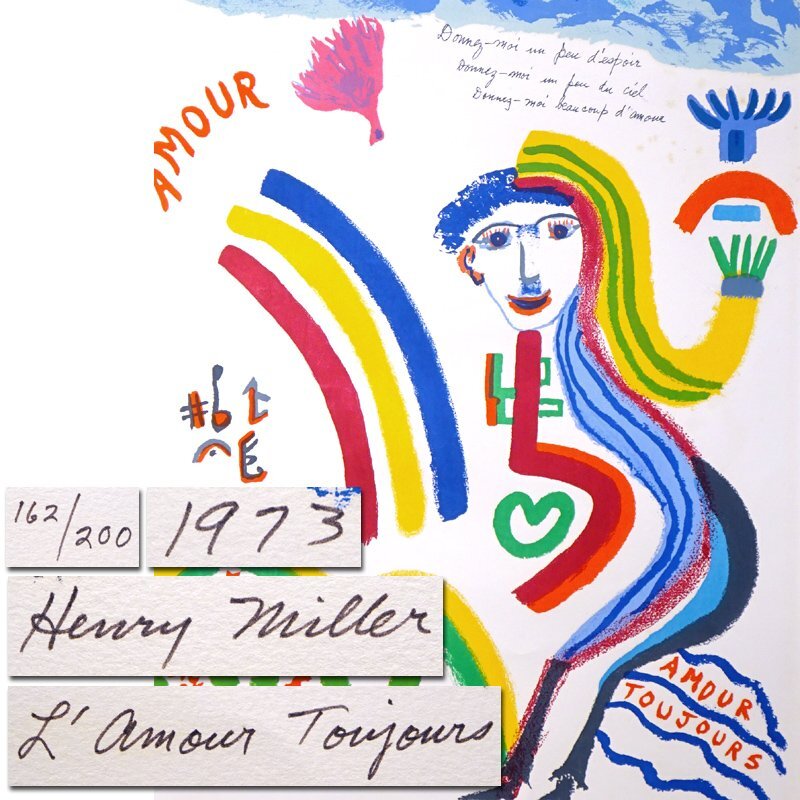 Donnez-moi un peu d'espoir
Donnez-moi un peu du ciel
Donnez-moi beaucoup d'amour
AMOUR
162/200
1973
Henry Miller
L'Amour Toujours
AMOUR
TOUJOURS